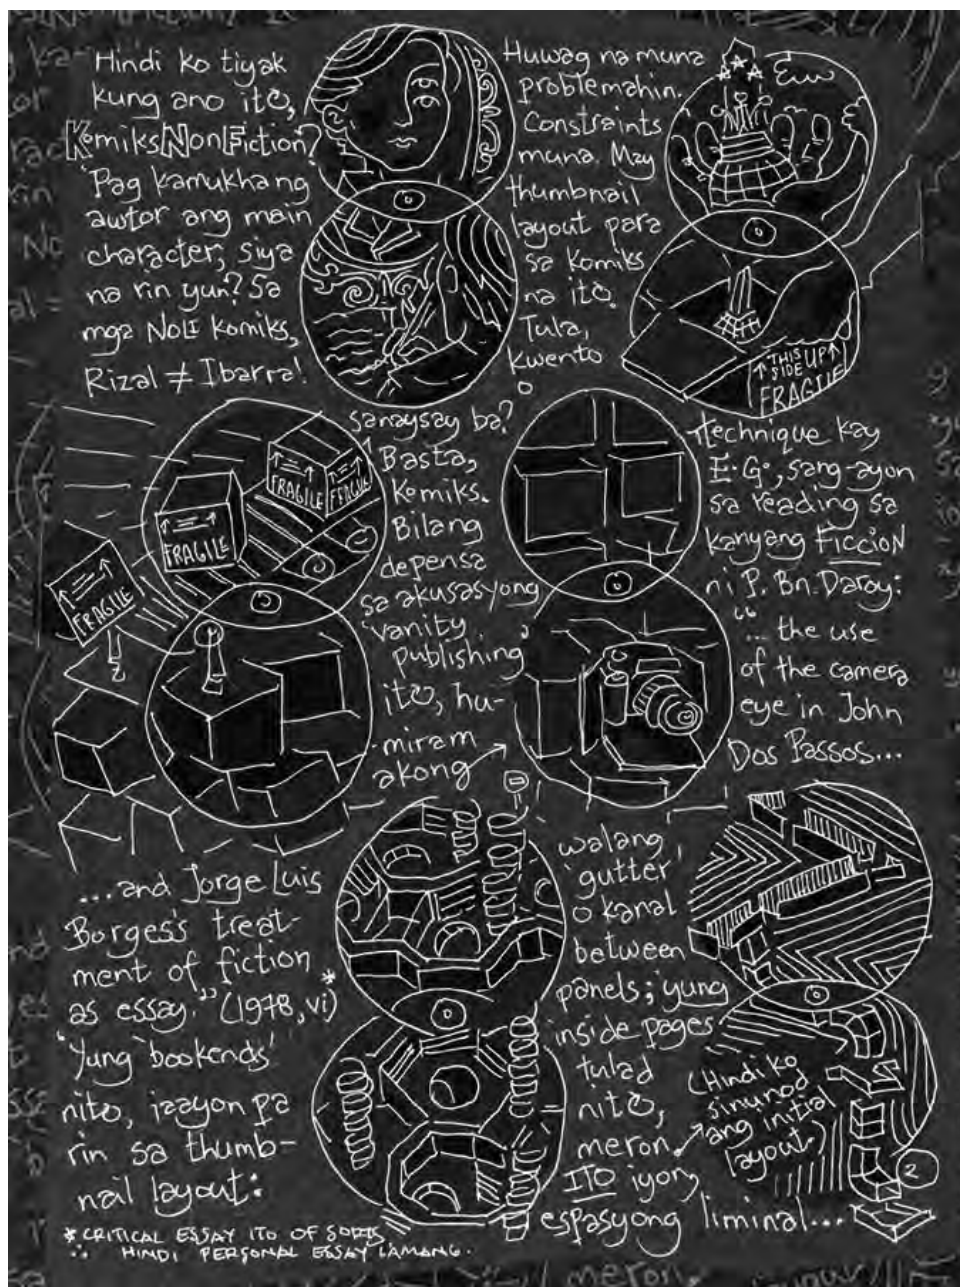 Hindi ko tiyak
kung ano ito,
KomiksNonFiction?
'Pag kamukha ng
awtor ang main
character, siya
na rin yun? Sa
mga NOLI komiks,
Rizal ≠ Ibarra!
Huwag na muna
problemahin.
Constraints
muna. May
thumbnail
layout para
sa komiks
na ito.
Tula,
kwento
o
↑ THIS ↑
SIDE UP
FRAGILE
sanaysay ba?
Basta,
komiks.
Bilang
depensa
sa akusasyong
'vanity
publishing'
ito, hu-
miram
akong
FRAGILE
FRAGILE
FRAGILE
FRAGILE
technique kay
E.G., sang-ayon
sa reading sa
kanyang FICCION
ni P. Bn. Daroy:
"... the use
of the camera
eye in John
Dos Passos...
....and Jorge Luis
Borges's treat-
ment of fiction
as essay." (1978, vi)*
'Yung 'bookends'
nito, iaayon pa
rin sa thumb-
nail layout:
walang
'gutter'
o kanal
between
panels; yung
inside pages
tulad
nito,
meron.
ITO iyon,
espasyong liminal...
(Hindi ko
sinunod
ang initial
layout.)
2
* CRITICAL ESSAY ITO OF SORTS
∴ HINDI PERSONAL ESSAY LAMANG.
meron.